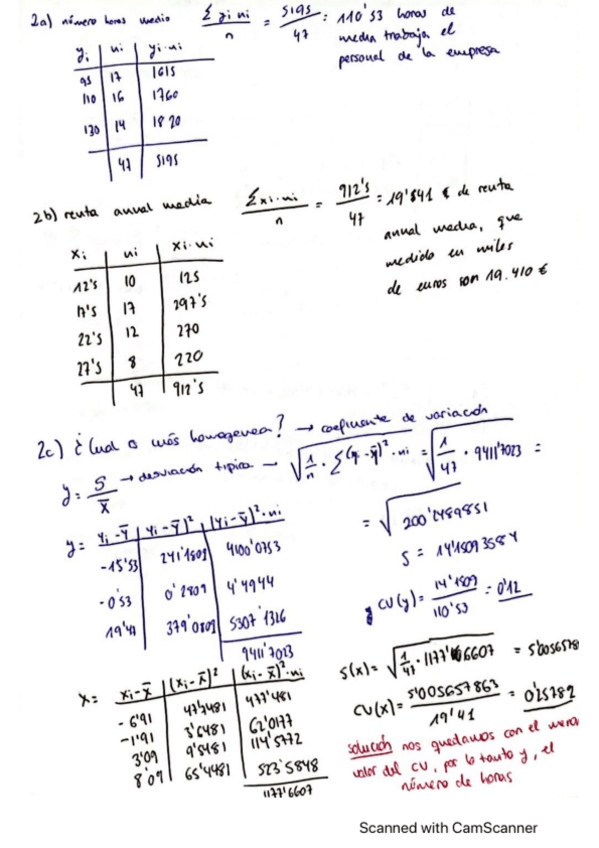 2a) número horas medio Σ yi ni / n = 5195 / 47 = 110'53 horas de
media trabaja el
personal de la empresa
yi | ni | yi·ni
95 | 17 | 1615
110 | 16 | 1760
130 | 14 | 1820
47 | 5195
2b) renta anual media Σ xi·ni / n = 912'5 / 47 = 19'841 € de renta
anual media, que
medido en miles
de euros son 19.410 €
xi | ni | xi·ni
12's | 10 | 125
17's | 17 | 297's
22's | 12 | 270
27's | 8 | 220
47 | 912's
2c) ¿Cual es más homogenea? → coeficiente de variación
y = S / x̄ → desviación tipica → √ 1/n · Σ(y - ȳ)² · ni = √ 1/47 · 9411'7023 =
= √ 200'2489851
S = 14'15093584
y = yi - ȳ | (yi - ȳ)² | (yi - ȳ)² · ni
-15'53 | 241'1809 | 4100'0753
-0'53 | 0'2809 | 4'4944
19'47 | 379'0809 | 5307'1326
9411'7023
CV(y) = 14'1509 / 110'53 = 0'12
x = xi - x̄ | (xi - x̄)² | (xi - x̄)² · ni
-6'91 | 47'7481 | 477'481
-1'91 | 3'6481 | 62'0177
3'09 | 9'5481 | 114'5772
8'09 | 65'4481 | 523'5848
1177'6607
S(x) = √ 1/47 · 1177'6607 = 5'0056578
CV(x) = 5'005657863 / 19'41 = 0'25782
solución nos quedamos con el menor
valor del CV, por lo tanto y, el
número de horas
Scanned with CamScanner